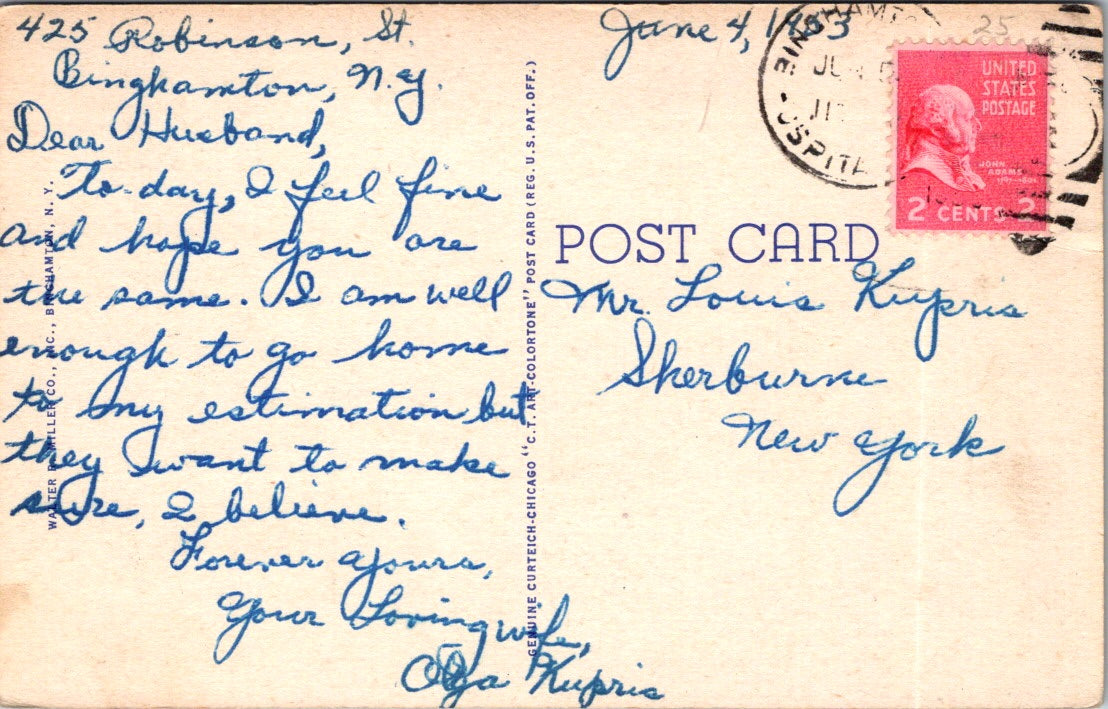 425 Robinson, St.
Binghamton, N.Y.
June 4, 1953
Dear Husband,
To-day, I feel fine
and hope you are
the same. I am well
enough to go home
to my estimation but
they want to make
sure, I believe.
Forever yours,
Your Loving wife,
Olga Kupris
WALTER R. MILLER CO., INC., BINGHAMTON, N. Y.
GENUINE CURTEICH-CHICAGO "C. T. ART-COLORTONE" POST CARD (REG. U. S. PAT. OFF.)
25
BINGHAMTO
JUN 5
HOSPITA
UNITED
STATES
POSTAGE
JOHN
ADAMS
2 CENTS 2
POST CARD
Mr. Louis Kupris
Sherburne
New York